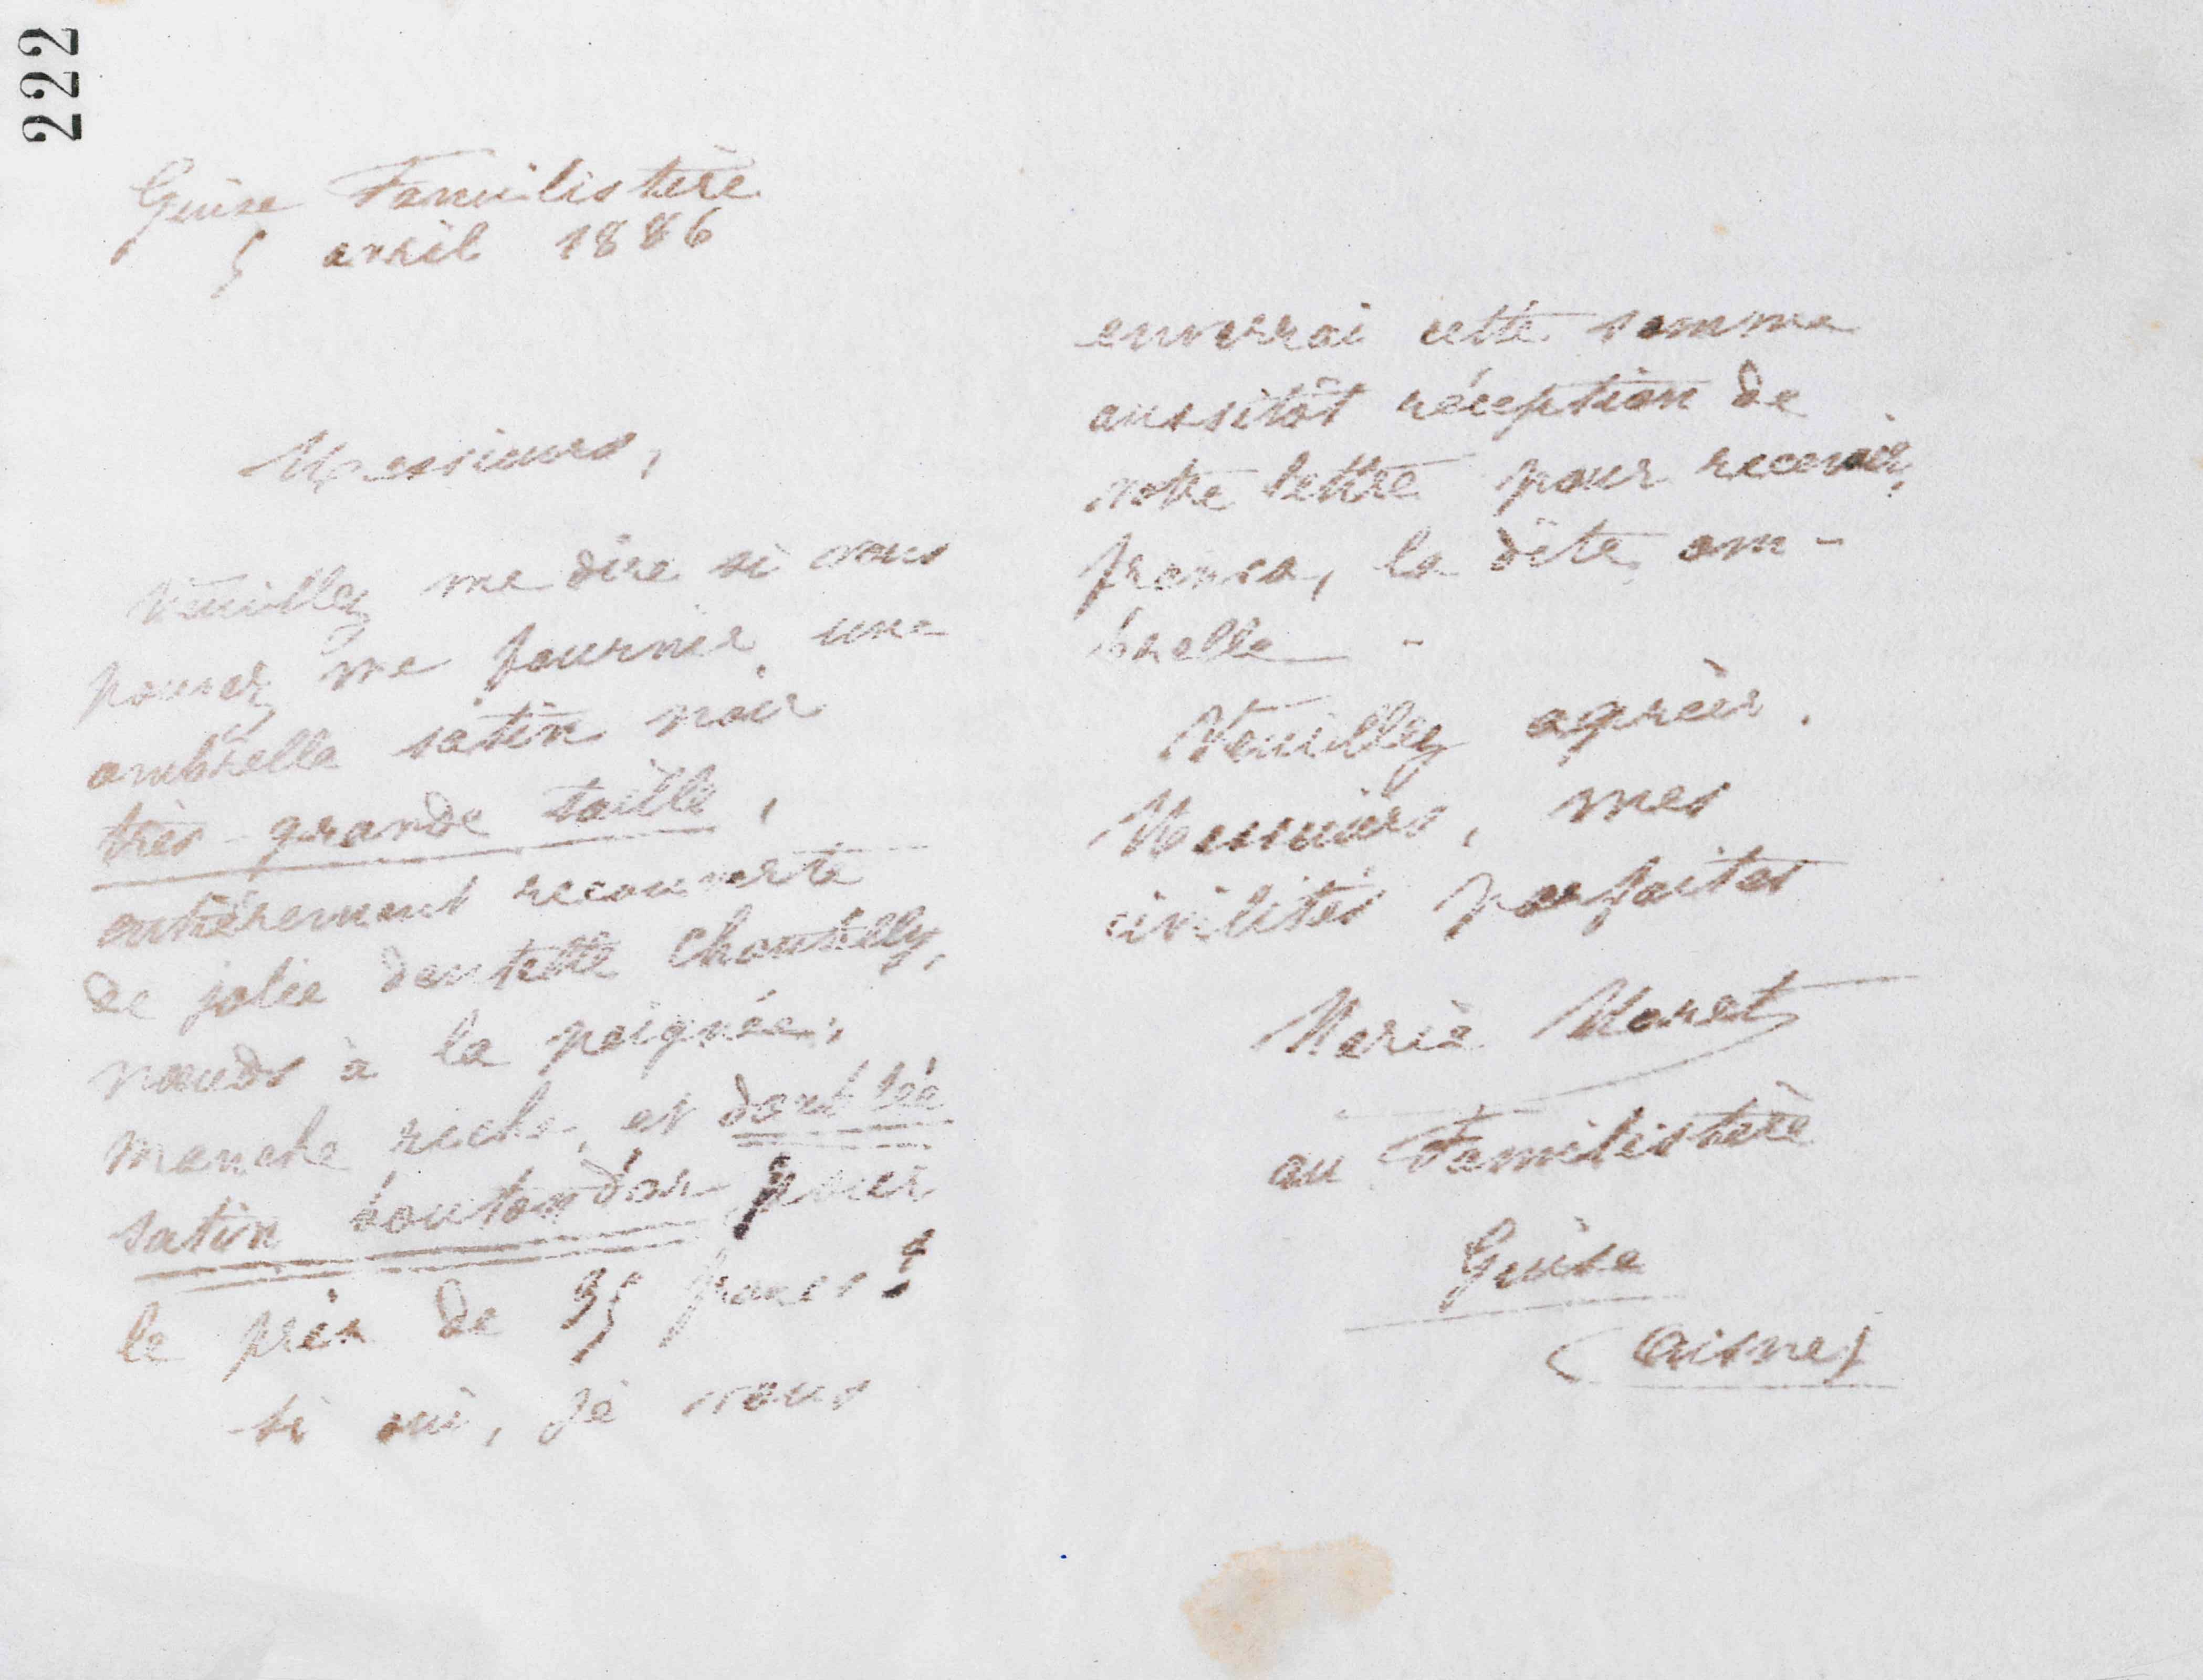 222
Guise Familistère
5 avril 1886
Messieurs,
Veuillez me dire si vous
pouvez me fournir une
ombrelle satin noir
très grande taille,
entièrement recouverte
de jolie dentelle Chantilly,
nœuds à la poignée,
manche riche, et doublée
satin bouton d'or pour
le prix de 35 francs ?
Si oui, je vous
enverrai cette somme
aussitôt réception de
votre lettre pour recevoir,
franco, la dite om-
brelle -
Veuillez agréer,
Messieurs, mes
civilités parfaites
Marie Moret
au Familistère
Guise
(Aisne)